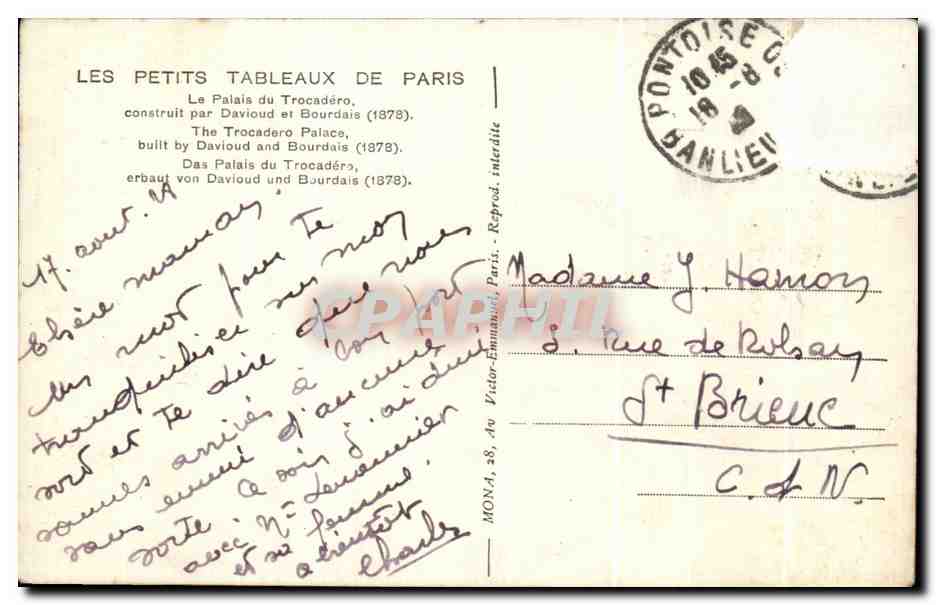 LES PETITS TABLEAUX DE PARIS
Le Palais du Trocadéro,
construit par Davioud et Bourdais (1878).
The Trocadero Palace,
built by Davioud and Bourdais (1878).
Das Palais du Trocadéro,
erbaut von Davioud und Bourdais (1878).
17. aout.
Chère maman,
un mot pour te
tranquiliser sur mon
sort et te dire que nous
sommes arrivés à bon port
sans ennui d'aucune
sorte. Ce soir j'ai diné
avec Mr Lemonnier
et sa femme.
a bientôt
Charles
MONA, 28, Av Victor-Emmanuel, Paris. - Reprod. interdite
PONTOISE
10 45
18 -8
BANLIEU
Madame J. Hamon
Rue de Rohan
St Brieuc
C. d N.
CPAPHIL